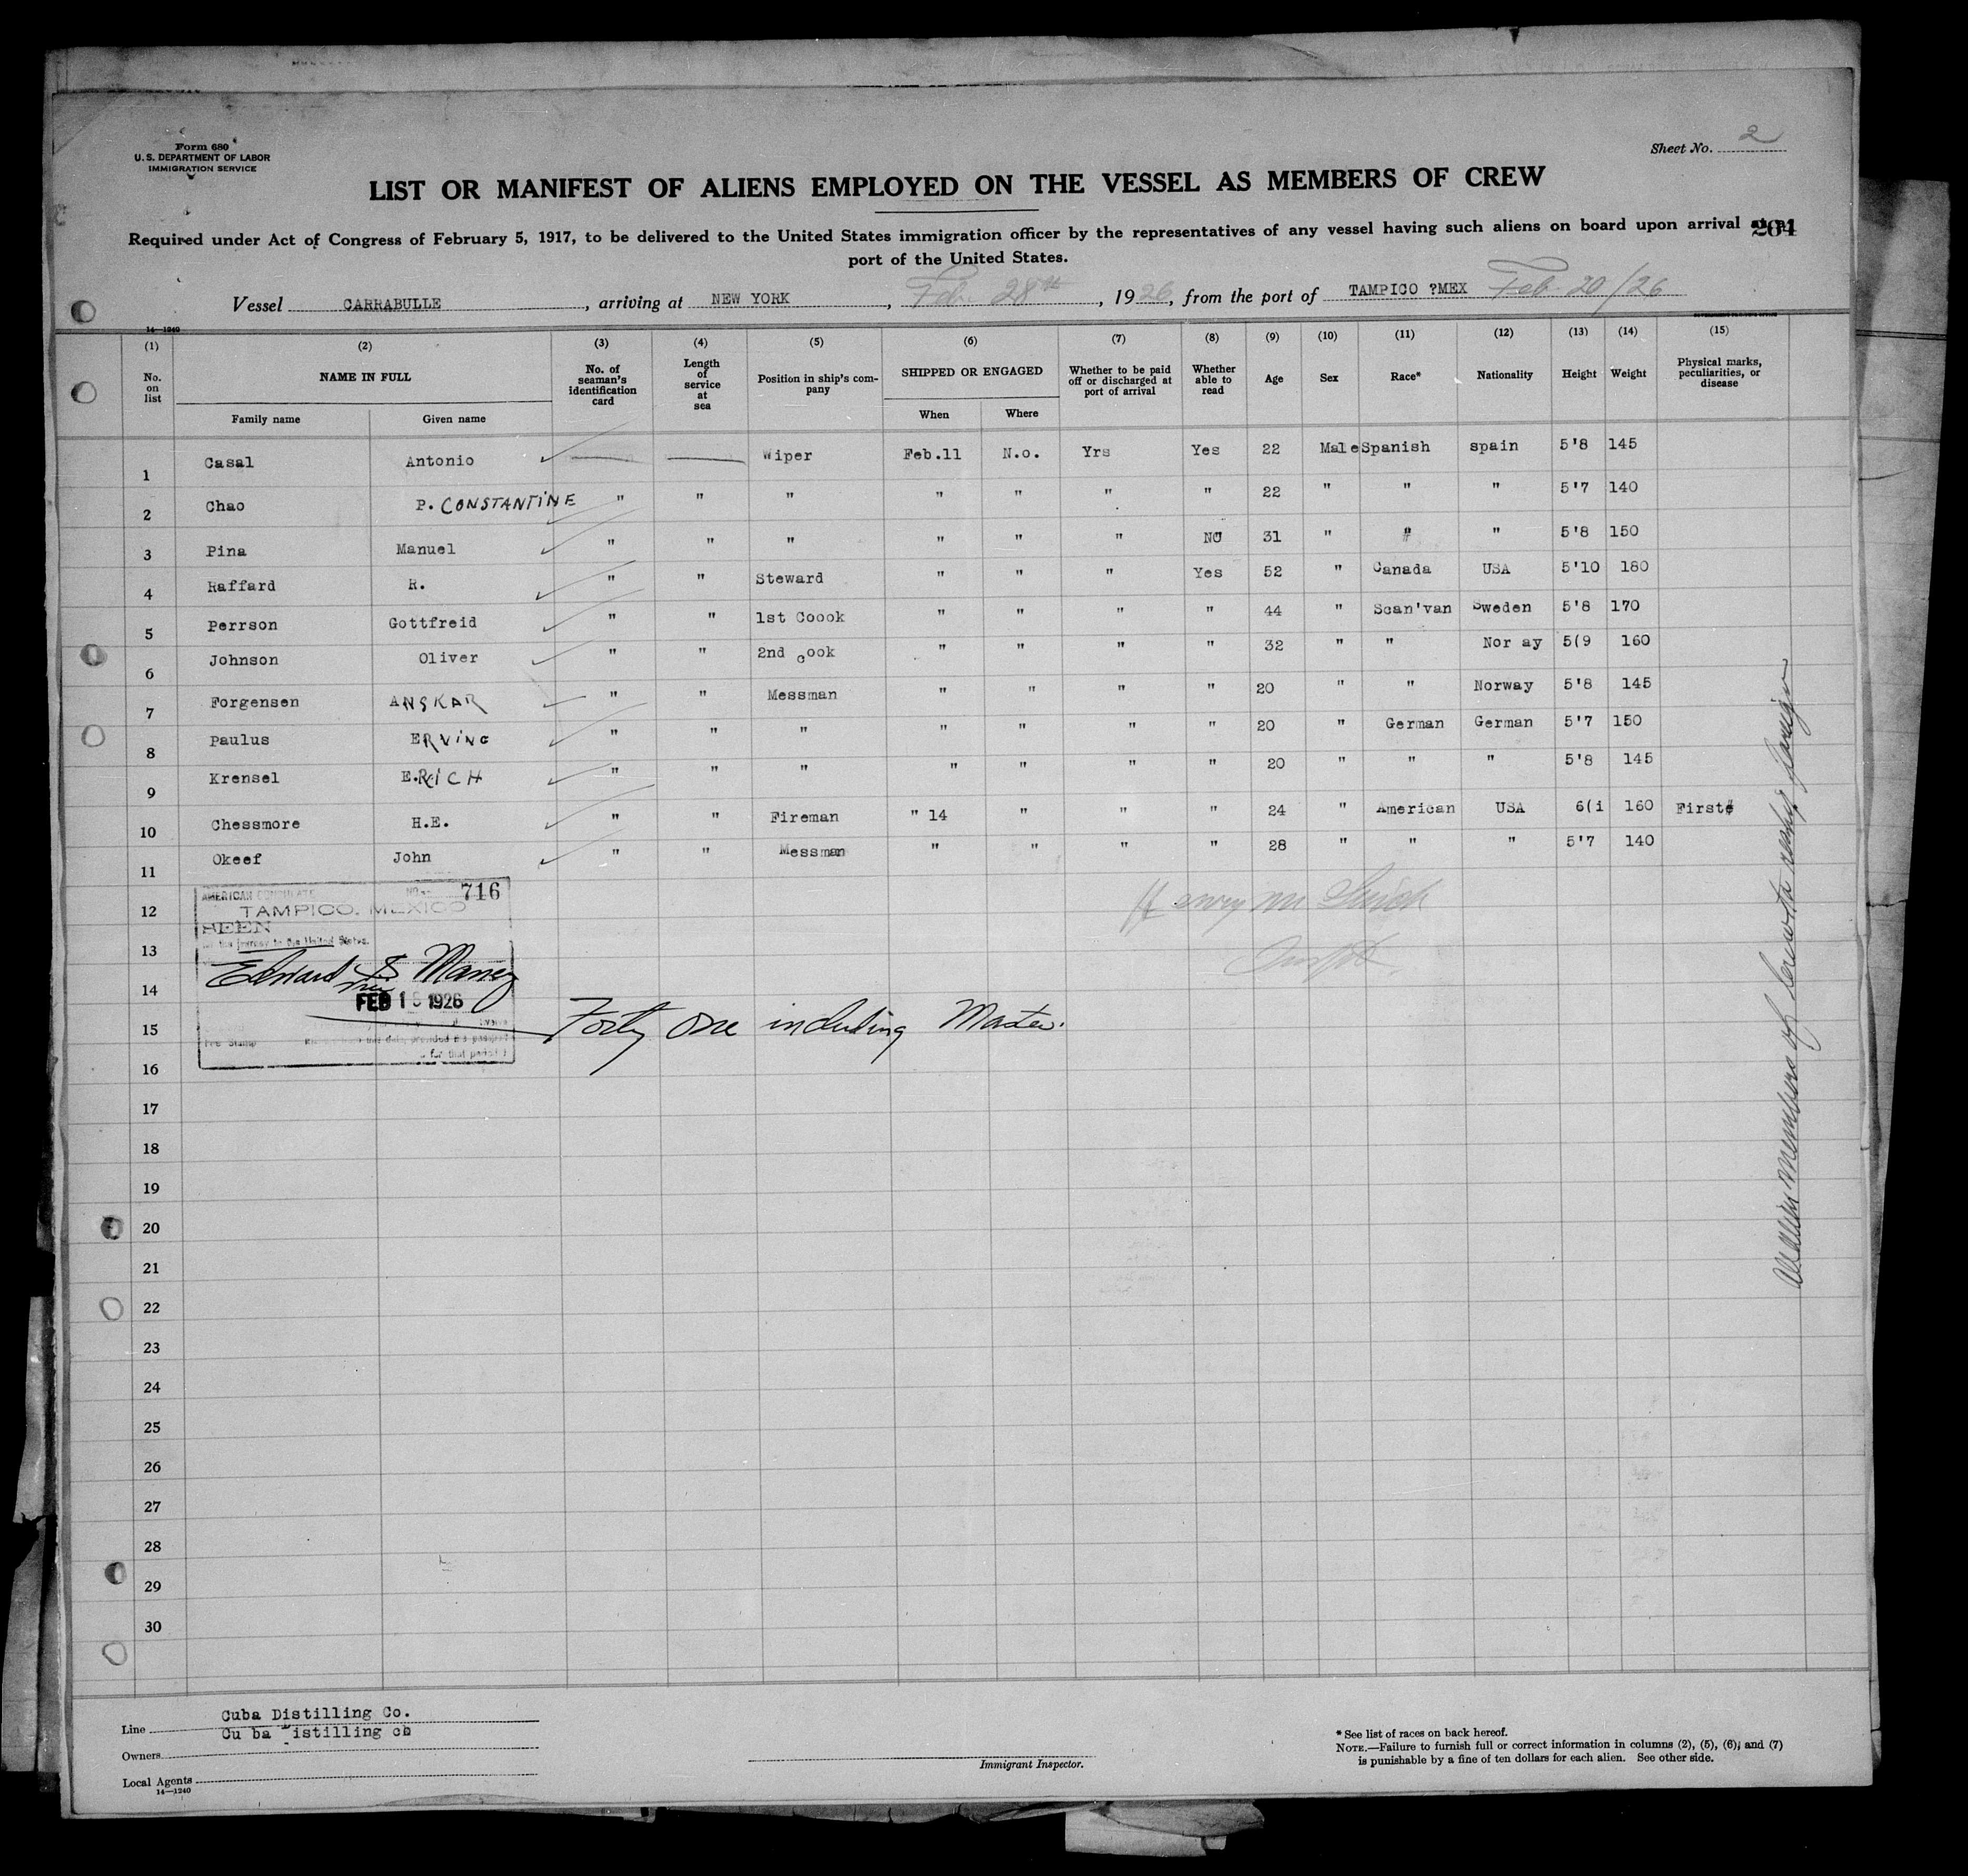 Form 680
U. S. DEPARTMENT OF LABOR
IMMIGRATION SERVICE
Sheet No. 2
LIST OR MANIFEST OF ALIENS EMPLOYED ON THE VESSEL AS MEMBERS OF CREW
Required under Act of Congress of February 5, 1917, to be delivered to the United States immigration officer by the representatives of any vessel having such aliens on board upon arrival
port of the United States.
Vessel CARRABULLE, arriving at NEW YORK, Feb. 28th, 1926, from the port of TAMPICO ?MEX Feb. 20/26
14—1240
(1) (2) (3) (4) (5) (6) (7) (8) (9) (10) (11) (12) (13) (14) (15)
No. on list NAME IN FULL No. of seaman's identification card Length of service at sea Position in ship's company SHIPPED OR ENGAGED Whether to be paid off or discharged at port of arrival Whether able to read Age Sex Race* Nationality Height Weight Physical marks, peculiarities, or disease
Family name Given name When Where
1 Casal Antonio Wiper Feb.11 N.o. Yrs Yes 22 Male Spanish spain 5'8 145
2 Chao P. CONSTANTINE " " " " " " " 22 " " " 5'7 140
3 Pina Manuel " " " " " " NO 31 " " " 5'8 150
4 Raffard R. " " Steward " " " Yes 52 " Canada USA 5'10 180
5 Perrson Gottfreid " " 1st Coook " " " " 44 " Scan'van Sweden 5'8 170
6 Johnson Oliver " " 2nd cook " " " " 32 " " Nor ay 5(9 160
7 Forgensen ANSKAR " " Messman " " " " 20 " " Norway 5'8 145
8 Paulus ERVING " " " " " " " 20 " German German 5'7 150
9 Krensel E.RICH " " " " " " " 20 " " " 5'8 145
10 Chessmore H.E. " " Fireman " 14 " " " 24 " American USA 6(i 160 First
11 Okeef John " " Messman " " " " 28 " " " 5'7 140
12
13
14
15 Forty One including Master.
16
17
18
19
20
21
22
23
24
25
26
27
28
29
30
AMERICAN CONSULATE NO. 716
TAMPICO, MEXICO
SEEN
for the journey to the United States.
Edward S Maney
FEB 1 1926
Fee Stamp
Line Cuba Distilling Co.
Owners Cu ba istilling co
Local Agents
14—1240
Immigrant Inspector.
* See list of races on back hereof.
NOTE.—Failure to furnish full or correct information in columns (2), (5), (6), and (7)
is punishable by a fine of ten dollars for each alien. See other side.